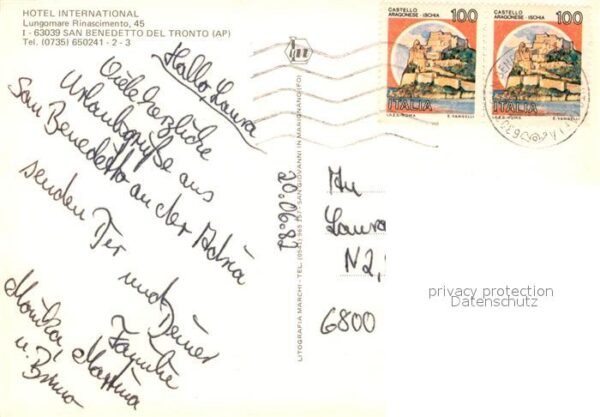 HOTEL INTERNATIONAL
Lungomare Rinascimento, 45
I - 63039 SAN BENEDETTO DEL TRONTO (AP)
Tel. (0735) 650241 - 2 - 3
Hallo, Laura
Viele herzliche
Urlaubsgrüße aus
San Benedetto an der Adria
senden Dir und Deiner
Familie
Monika, Martina
u. Bruno
LITOGRAFIA MARCHI - TEL. (0541) 966 257 - SAN GIOVANNI IN MARIGNANO (FO)
20.06.82
CASTELLO
ARAGONESE - ISCHIA
100
ITALIA
I.P.Z.S. - ROMA
E. VANGELLI
CASTELLO
ARAGONESE - ISCHIA
100
ITALIA
I.P.Z.S. - ROMA
E. VANGELLI
An
Laura
N2,
6800
privacy protection
Datenschutz